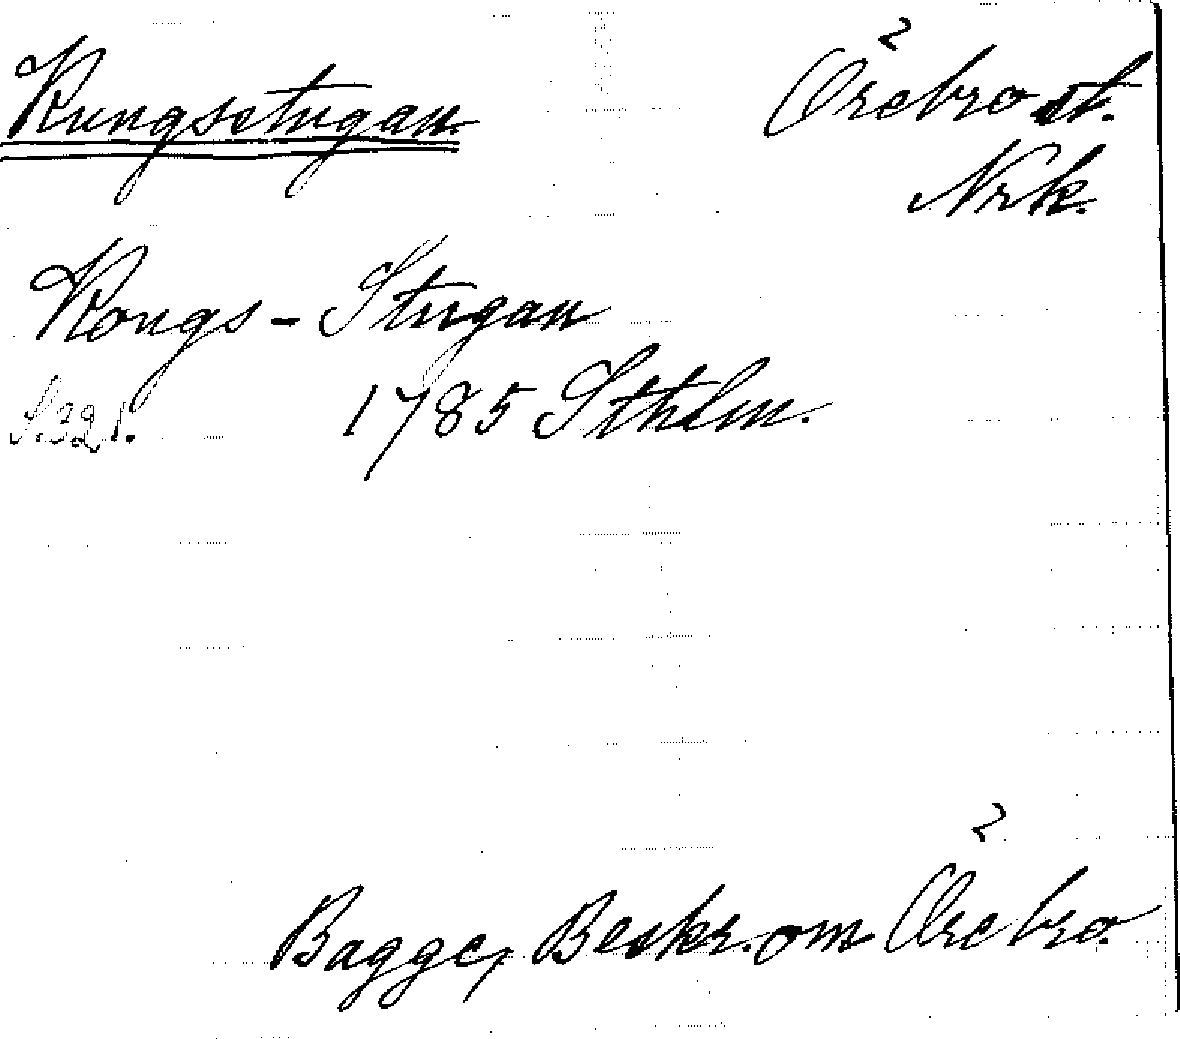 Kungsstugan Örebro st.
Nrk.
Kongs-Stugan
S. 321. 1785 Sthlm.
Bagge, Beskr. om Örebro